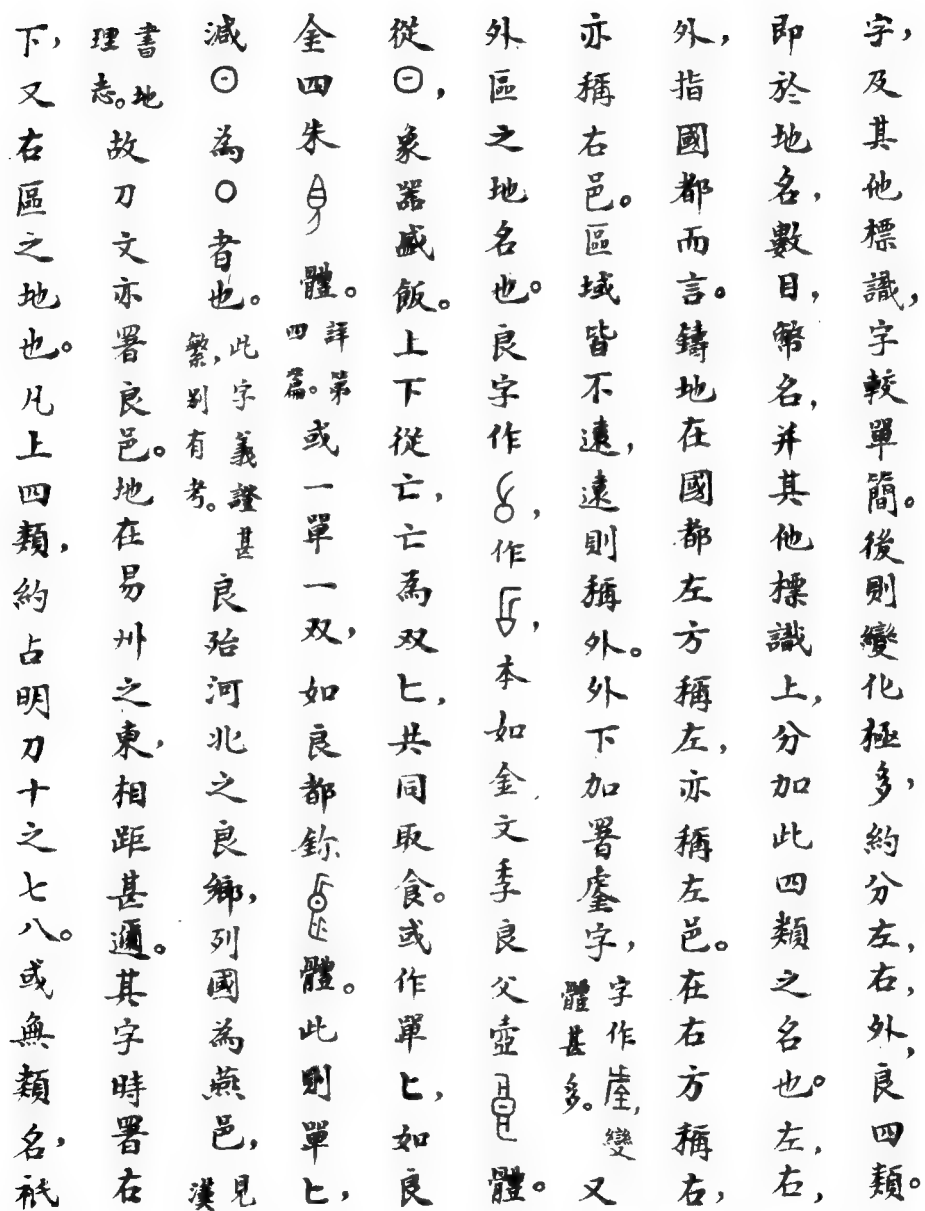 字，及其他標識，字較單簡。後則變化極多，約分左，右，外，良四類。
即於地名，數目，幣名，并其他標識上，分加此四類之名也。左，右，
外，指國都而言。鑄地在國都左方稱左，亦稱左邑。在右方稱右，
亦稱右邑。區域皆不遠，遠則稱外。外下加署字，字作，變體甚多。又
外區之地名也。良字作，作，本如金文季良父壺體。
從，象器盛飯。上下從亡，亡為双匕，共同取食。或作單匕，如良
金四朱體。詳第四篇。或一單一双，如良都鉨體。此則單匕，
減為○者也。此字義證甚繁，別有考。良殆河北之良鄉，列國為燕邑，見漢
書地理志。故刀文亦署良邑。地在易州之東，相距甚邇。其字時署右
下，又右區之地也。凡上四類，約占明刀十之七八。或無類名，祇